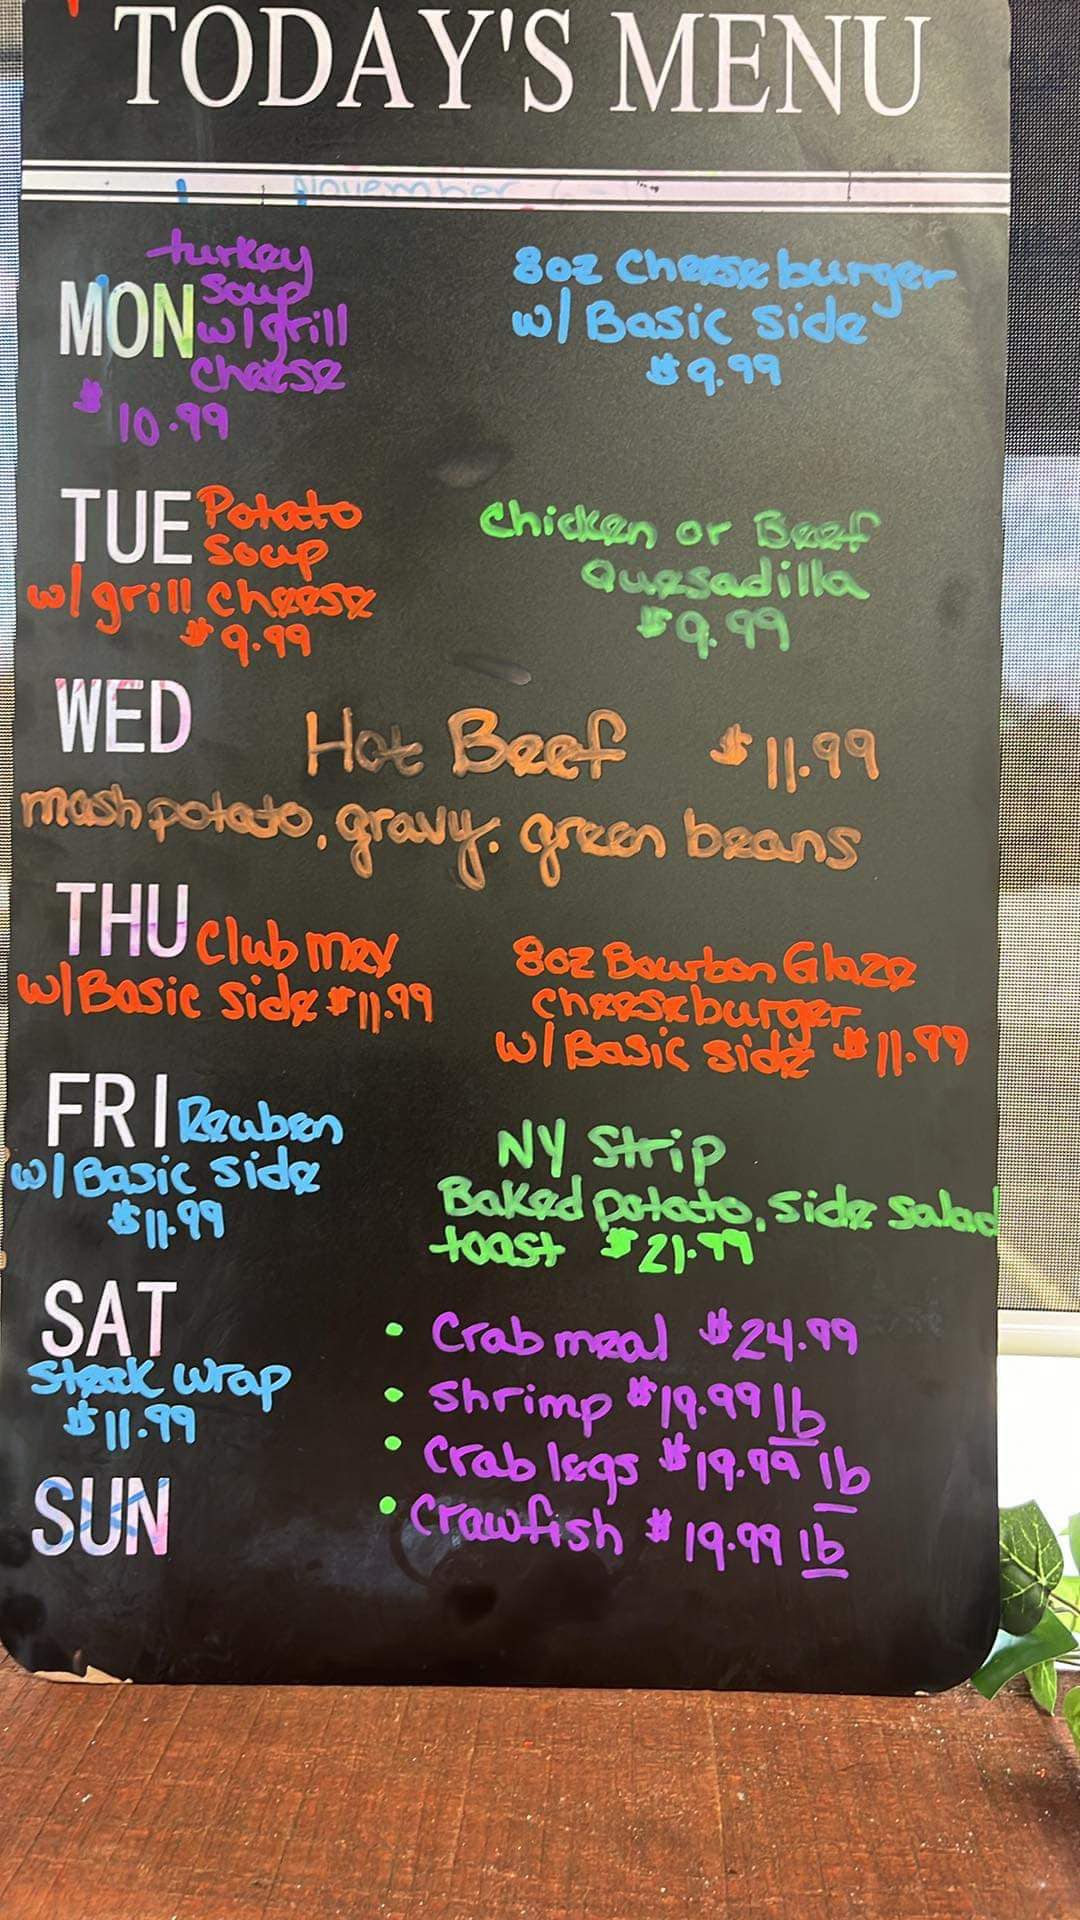 TODAY'S MENU
November
MON
turkey
soup
w/grill
cheese
$10.99
8oz Cheeseburger
w/ Basic side
$9.99
TUE
Potato
soup
w/ grill cheese
$9.99
Chicken or Beef
Quesadilla
$9.99
WED
Hot Beef $11.99
mash potato, gravy, green beans
THU
Club
w/Basic side $11.99
8oz Bourbon Glaze
cheeseburger
w/ Basic side $11.99
FRI
Reuben
w/ Basic side
$11.99
NY Strip
Baked potato, side salad
toast $21.99
SAT
steak wrap
$11.99
• Crab meal $24.99
• shrimp $19.99 lb
• Crab legs $19.99 lb
• Crawfish $19.99 lb
SUN